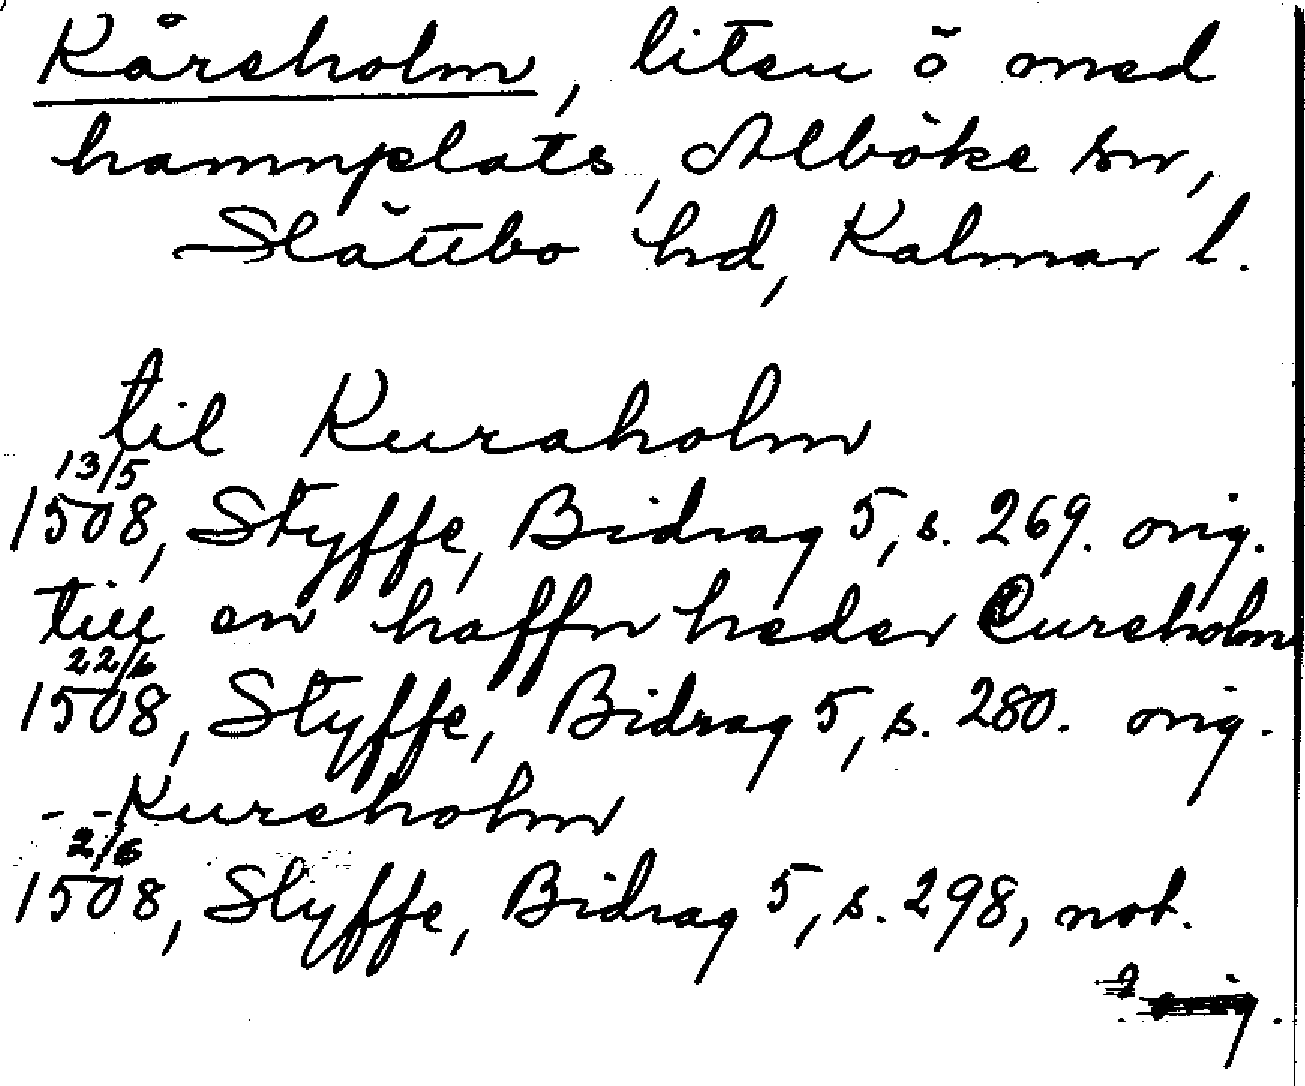 Kåreholm, liten ö med
hamnplats, Alböke sn,
Slättbo hd, Kalmar l.
til Kuraholm
13/5
1508, Styffe, Bidrag 5, s. 269. orig.
till en haffn heder Cureholm
22/6
1508, Styffe, Bidrag 5, s. 280. orig.
- - Kureholm
2/6
1508, Styffe, Bidrag 5, s. 298, not.